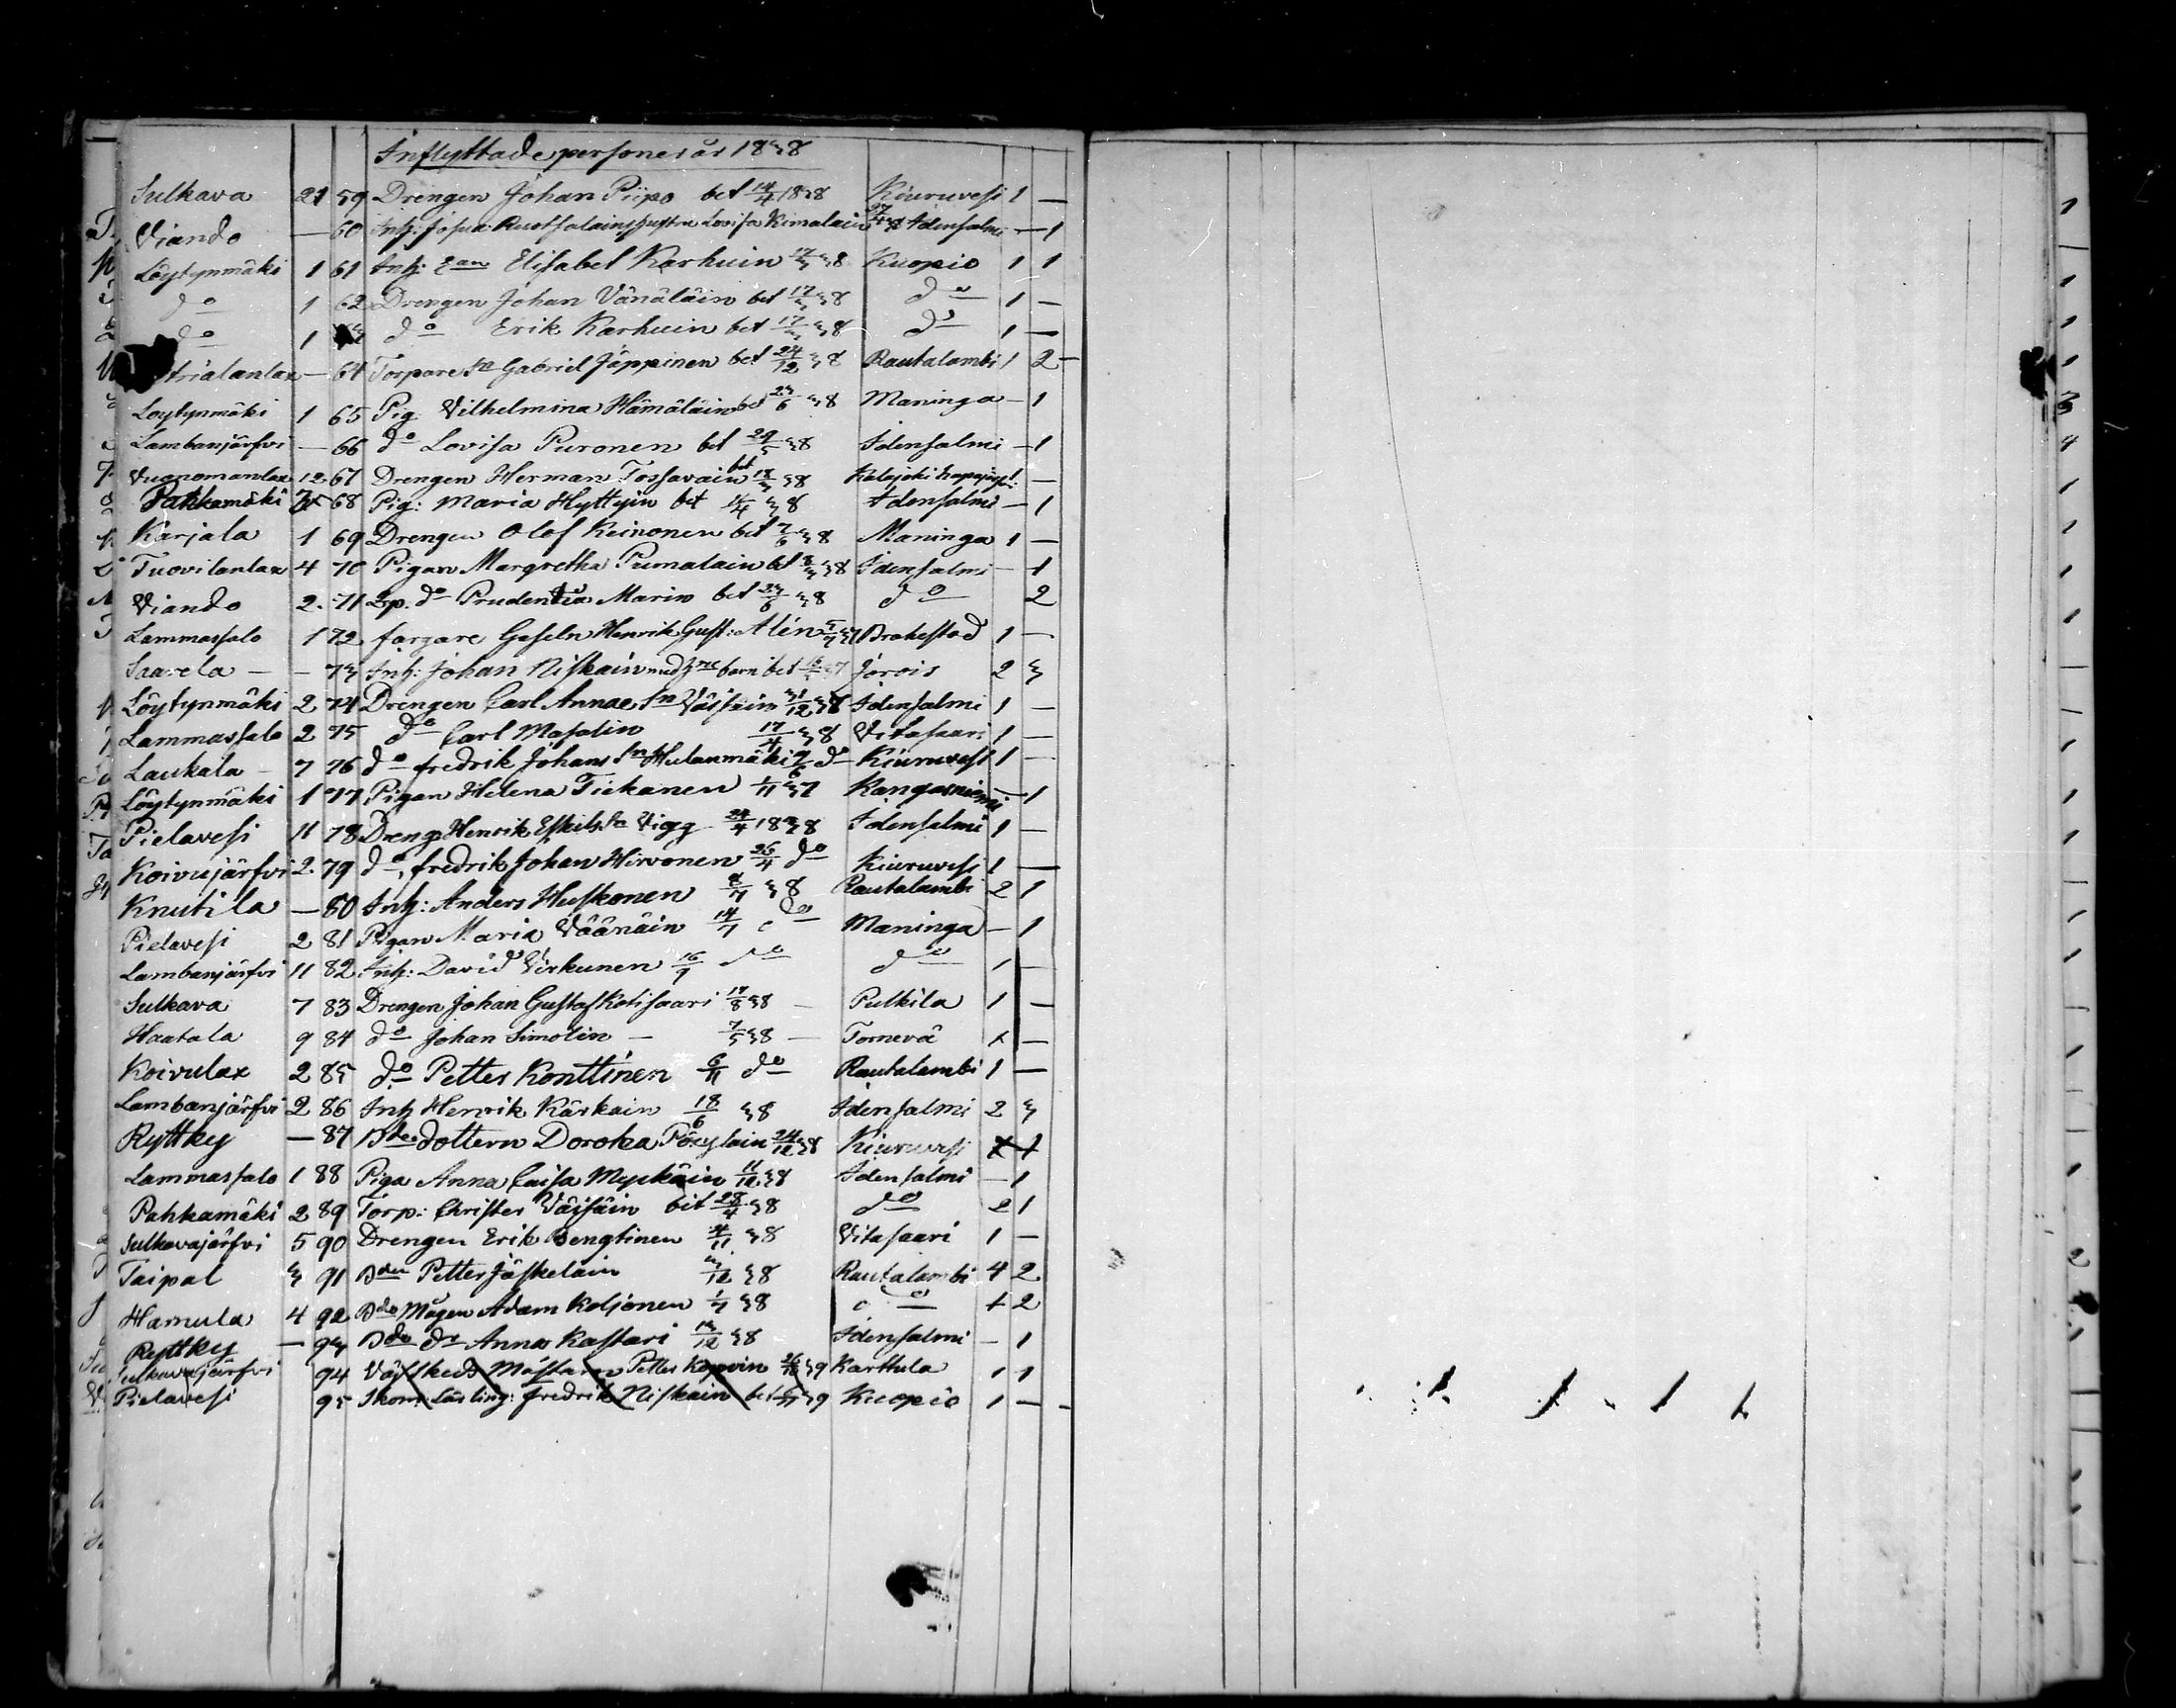 Inflyttade personer år 1838
Sulkava 21 59 Drengen Johan Piipo bet 14/4 1838 Kiuruvesi 1 —
Viando — 60 Inh: Josua Ruotsalains hustru Lovisa Kimalain 27/4 38 Idensalmi — 1
Löytynmäki 1 61 Inh: Elisabet Karhuin 17/3 38 Kuopio 1 1
do 1 62 Drengen Johan Vänäläin bet 17/3 38 do 1 —
do 1 do Erik Karhuin bet 17/3 38 do 1 —
— 64 Torpare Sn Gabriel Jäppinen bet 24/12 38 Rautalambi 1 2 —
Loytynmäki 1 65 Pig. Vilhelmina Hämäläin bet 23/6 38 Maninga — 1
Lambanjärfvi — 66 do Lovisa Puronen bet 29/5 38 Idensalmi — 1
Vuonomanlax 12 67 Drengen Herman Tossavain bet 38 —
Pahkamäki 68 Pig: Maria Hyttyin bet 14/4 38 Idensalmi — 1
Karjala 1 69 Drengen Olof Keinonen bet 7/6 38 Maninga 1 —
Tuovilanlax 4 70 Pigan Margretha Pumalain bet 8/3 38 Idensalmi — 1
Viando 2 71 Lp. do Prudentia Marin bet 23/6 38 do 2
Lammassalo 1 72 färgare Geseln Henrik Gust: Alén 5/7 37 Brahestad 1 —
Saarela — — 73 Inh: Johan Niskain med barn bet 37 Jorois 2 3
Löytynmäki 2 74 Drengen Carl Annae Sn Väisäin 31/12 38 Idensalmi 1 —
Lammassalo 2 75 do Carl Masalin 17/4 38 Vitasaari 1 —
Laukala — 7 76 do fredrik Johans Sn Hulanmäki 9/6 do Kiuruvesi 1 —
Löytynmäki 1 77 Pigan Helena Tiekanen 1/11 37 Kangasniemi — 1
Pielavesi 11 78 Dreng Henrik Eskils Sn Vigg 24/4 1838 Idensalmi 1 —
Koivujärfvi 2 79 do, fredrik Johan Hirvonen 26/4 do Kiuruvesi 1 —
Knutila — 80 Inh: Anders Huskonen 8/7 38 Rautalambi 2 1
Pielavesi 2 81 Pigan Maria Väänäin 14/7 do Maninga — 1
Lambanjärfvi 11 82 Inh: David Virkunen 16/7 do do 1 —
Sulkava 7 83 Drengen Johan Gustaf Kotisaari 17/8 38 — Pulkila 1 —
Haatala 9 84 do Johan Simolin — 7/5 38 — Tornevå 1 —
Koivulax 2 85 do Petter Konttinen 6/11 do Rautalambi 1 —
Lambanjärfvi 2 86 Inh Henrik Kärkain 18/6 38 Idensalmi 2 3
Ryttky — 87 Bde dottern Dorotea Pöxylain 24/12 38 Kiuruvesi
Lammassalo 1 88 Piga Anna Caisa Myckäin 11/12 38 Idensalmi — 1
Pahkamäki 2 89 Torp: Christer Väisäin bet 28/4 38 do 2 1
Sulkavajärfvi 5 90 Drengen Erik Bengtinen 4/11 38 Vitasaari 1 —
Taipal 3 91 Bden Petter Jäskelain 3/12 38 Rautalambi 4 2
Hamula 4 92 Bde Mågen Adam Koljonen 1/7 38 do 1 2
Ryttky — 93 Bde do Anna Kastari 12 38 Idensalmi — 1
Sulkavajärfvi 94 Petter 39 Karttula 1 1
Pielavesi 95 Skom: Lärling: fredrik Niskain bet 39 Kuopio 1 — —